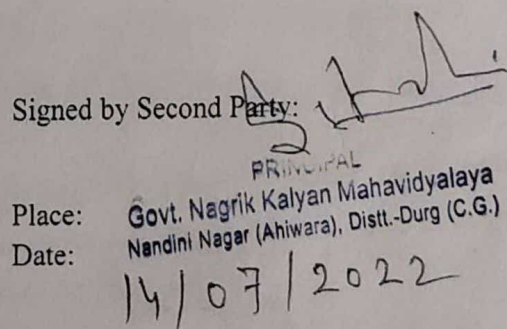 Signed by Second Party:
PRINCIPAL
Place: Govt. Nagrik Kalyan Mahavidyalaya
Date: Nandini Nagar (Ahiwara), Distt.-Durg (C.G.)
14/07/2022